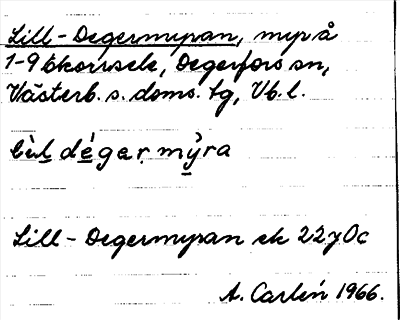 Lill-Degermyran, myr å
1-9 Ekorrsele, Degerfors sn,
Västerb. s. doms. tg, Vb. l.
dégermýra
Lill-Degermyran ek 22y0c
A. Carlén 1966.